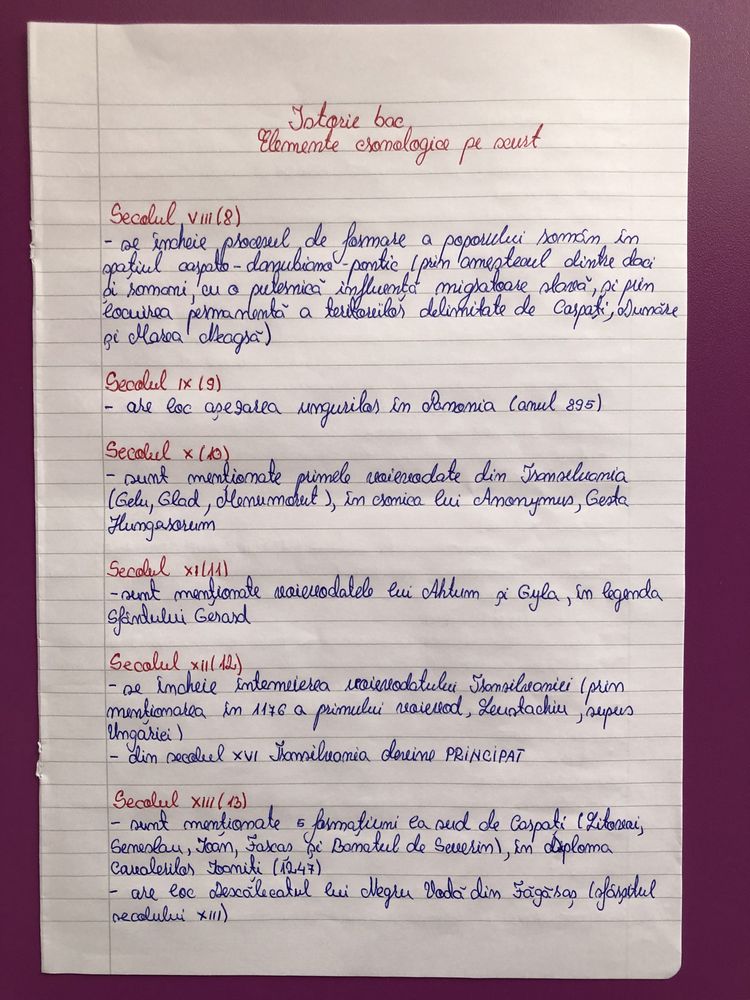 Istorie bac
Elemente cronologice pe scurt
Secolul VIII (8)
- se încheie procesul de formare a poporului român în
spațiul carpato-danubiano-pontic (prin amestecul dintre daci
și romani, cu o puternică influență migratoare slavă, și prin
locuirea permanentă a teritoriilor delimitate de Carpați, Dunăre
și Marea Neagră)
Secolul IX (9)
- are loc așezarea ungurilor în Panonia (anul 895)
Secolul X (10)
- sunt menționate primele voievodate din Transilvania
(Gelu, Glad, Menumorut), în cronica lui Anonymus, Gesta
Hungarorum
Secolul XI (11)
- sunt menționate voievodatele lui Ahtum și Gyla, în legenda
Sfântului Gerard
Secolul XII (12)
- se încheie întemeierea voievodatului Transilvaniei (prin
menționarea în 1176 a primului voievod, Leustachiu, supus
Ungariei)
- din secolul XVI Transilvania devine PRINCIPAT
Secolul XIII (13)
- sunt menționate 5 formațiuni la sud de Carpați (Litovoi,
Seneslau, Ioan, Farcaș și Banatul de Severin), în Diploma
Cavalerilor Ioaniti (1247)
- are loc Descălecatul lui Negru Vodă din Făgăraș (sfârșitul
secolului XIII)